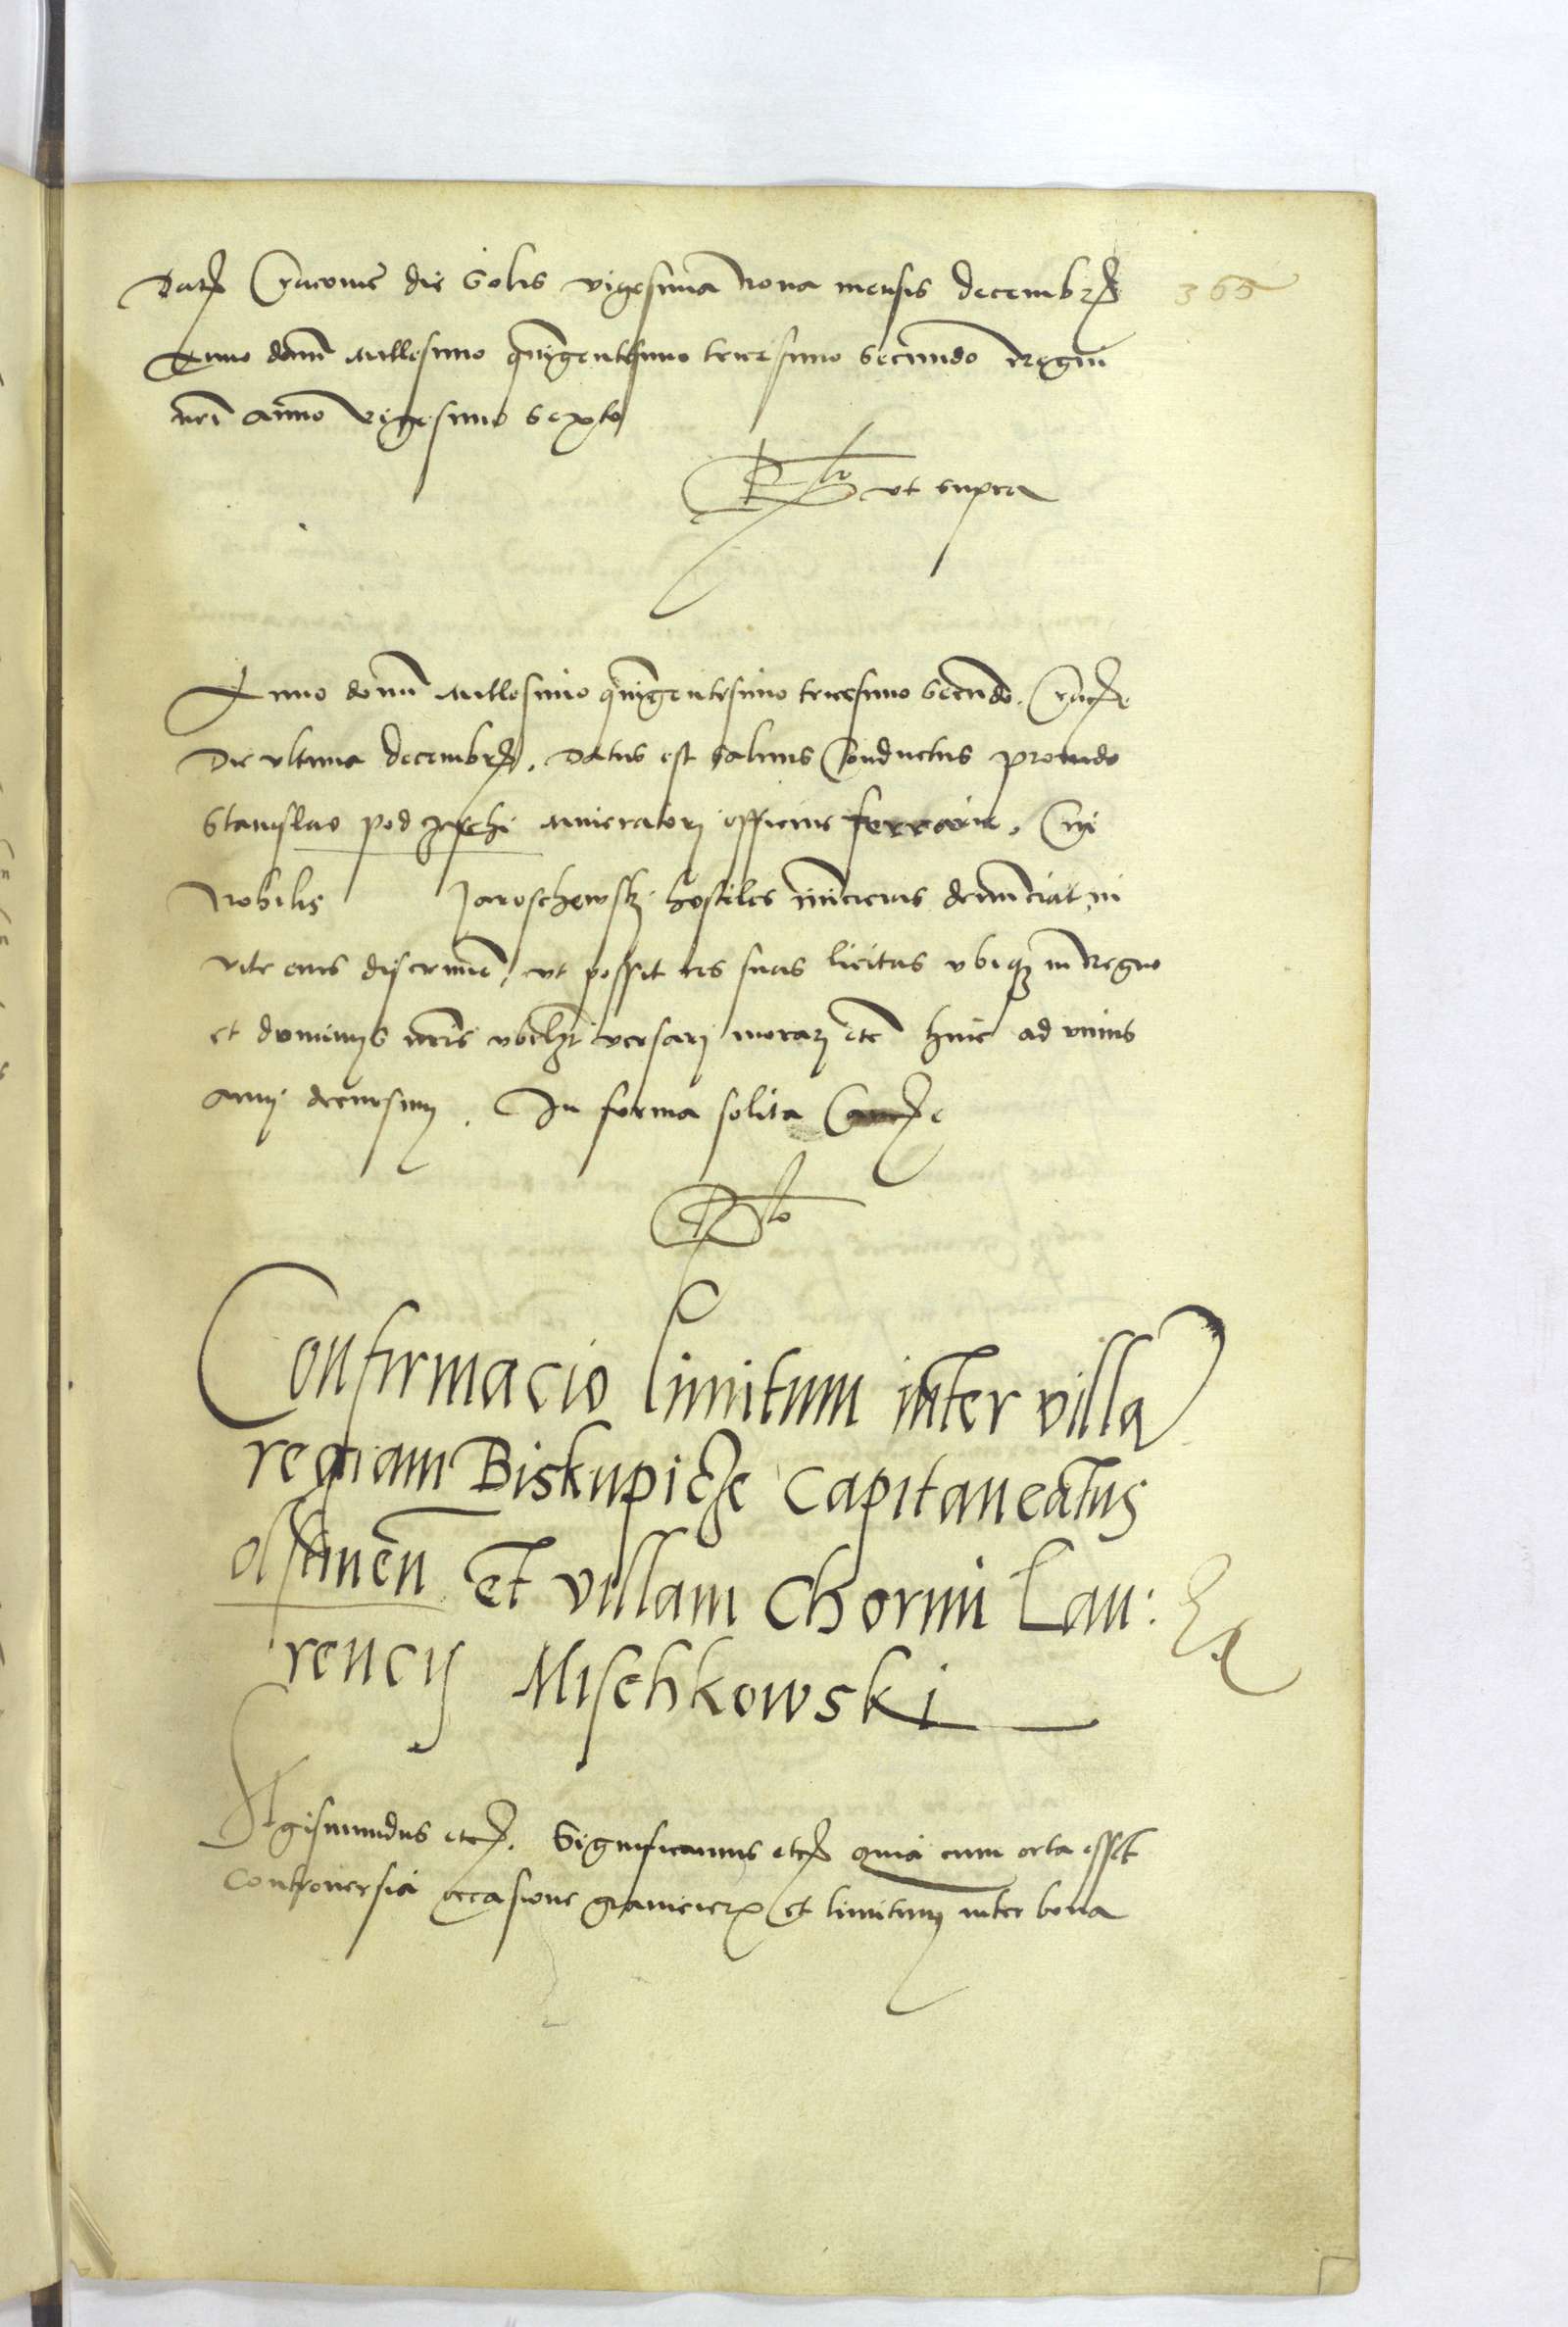 Datum Cracovie die Solis vigesima nona mensis decembris 365
Anno domini Millesimo quingentesimo tricesimo secundo Regni
nri anno vigesimo sexto
Rlo ut supra
Anno domini Millesimo quingentesimo tricesimo secundo. Crac
Die ultima decembris. Datus est saluus Conductus provido
Stanislao pod ministratori officine ferrarie. Cui
Nobilis Jaroschewsky hostiles inimicicias denunciat, in
vite eius discrimen, ut possit res suas licitas ubique in Regno
et dominijs nris ubilibet versari morari etc hinc ad unius
anni decursum. In forma solita
Rlo
Confirmacio limitum inter villa
regiam Biskupicze Capitaneatus
olstinen et villam Chorun Lau:
rencij Mischkowski
Sigismundus etc. Significamus etc quia cum orta esset
controversia occasione granicierum et limitum inter bona